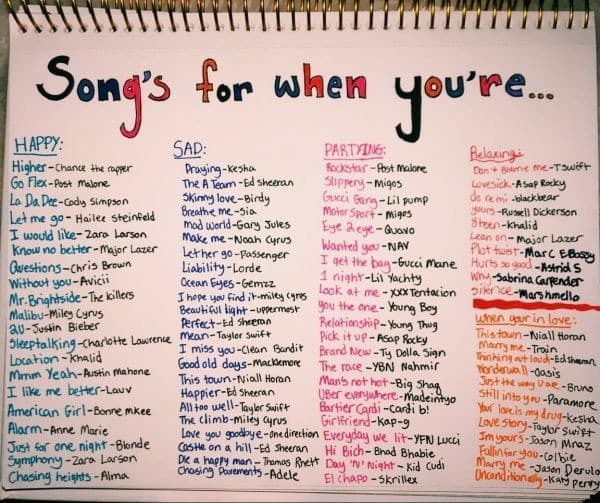 Song's for when you're...
HAPPY:
Higher-Chance the rapper
Go Flex-Post Malone
La Da Dee-Cody Simpson
Let me go - Hailee Steinfeld
I would like-Zara Larson
Know no better-Major Lazer
Questions-Chris Brown
Without you-Avicii
Mr. Brightside-The Killers
Malibu-Miley Cyrus
2U-Justin Bieber
Sleeptalking-Charlotte Lawrence
Location-Khalid
Mmm Yeah-Austin Mahone
I like me better-Lauv
American Girl-Bonne mkee
Alarm-Anne Marie
Just for one night-Blonde
Symphony-Zara Larson
Chasing heights-Alma
SAD:
Praying-Kesha
The A Team-Ed sheeran
Skinny love-Birdy
Breathe me-Sia
mad world-Gary Jules
Make me-Noah Cyrus
Let her go-Passenger
Liability-Lorde
Ocean Eyes-Gemzz
I hope you find it-miley Cyrus
Beautiful light-uppermost
Perfect-Ed Sheeran
mean-Taylor swift
I miss you-Clean Bandit
Good old days-Mackelmore
This town-Niall Horan
Happier-Ed Sheeran
All too well-Taylor Swift
The climb-miley Cyrus
Love you goodbye-one direction
Castle on a hill-Ed Sheeran
Die a happy man-Thomas Rhett
Chasing Pavements-Adele
PARTYING:
Rockstar-Post Malone
Slippery-Migos
Gucci Gang-Lil pump
Motor Sport-Migos
Eye 2 eye-Quavo
Wanted you-NAV
I get the bag-Gucci Mane
1 night-Lil Yachty
Look at me-XXXTentacion
you the one-Young Boy
Relationship-Young Thug
Pick it up-Asap Rocky
Brand New-Ty Dolla Sign
The race-YBN Nahmir
Mans not hot-Big Shaq
Uber everywhere-Madeintyo
Bartier Cardi-Cardi b!
Girlfriend-Kap-g
Everyday we lit-YFN Lucci
Hi Bich-Bhad Bhabie
Day 'N' Night-Kid Cudi
El Chapo-Skrillex
Relaxing:
Don't Blame me-TSwift
Lovesick-Asap Rocky
do re mi-blackbear
yours-Russell Dickerson
8teen-Khalid
Lean on-Major Lazer
Plot twist-Marc E Bassy
Hurts so good-Astrid S
Why-Sabrina Carpender
Silence-Marshmello
when your in love:
This town-Niall Horan
Marry me-Train
Thinking out loud-Ed Sheeran
Wonderwall-Oasis
Just the way U are-Bruno
Still into you-Paramore
Your love is my drug-Kesha
Love Story-Taylor Swift
Im yours-Jason Mraz
Fallin for you-Colbie
Marry me-Jason Derulo
Unconditionally-Katy Perry